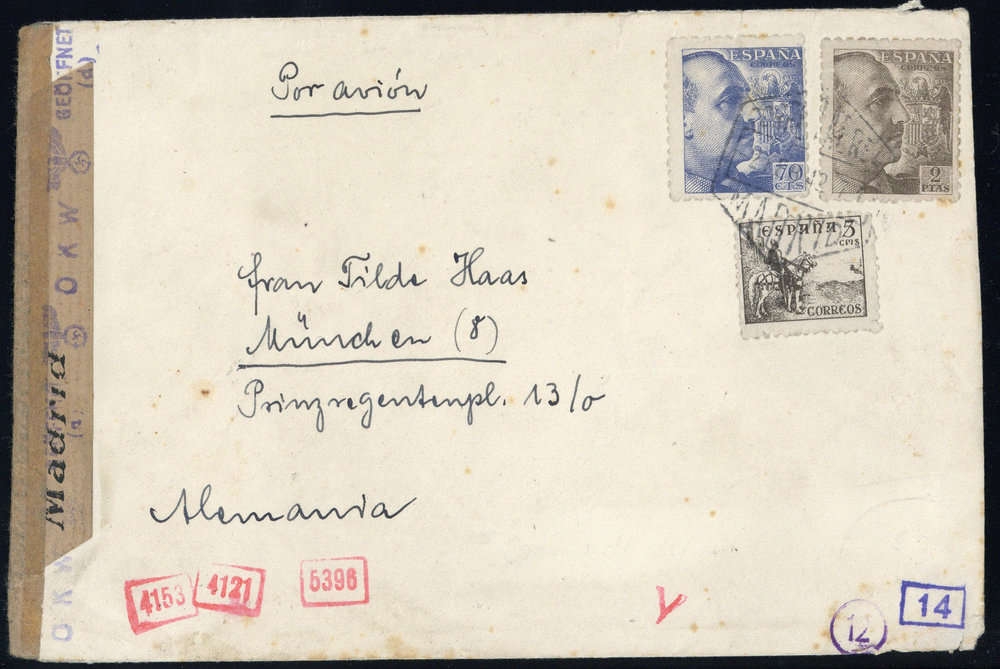 Por avión
ESPAÑA
CORREOS
70
CTS
ESPAÑA
CORREOS
2
PTAS
MADRID
ESPAÑA 5
CTS
CORREOS
Frau Tilde Haas
München (8)
Prinzregentenpl. 13/0
Alemania
GEÖFFNET
(d)
O K W
Madrid
(a)
O K W
4153
4121
5396
V
12
14